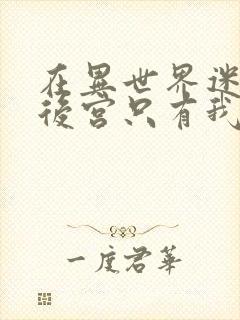 在異世界迷
後宮只有我
一度君華